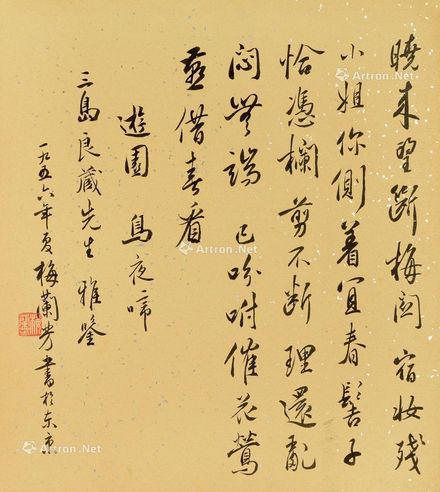 曉来望斷梅関宿妆殘
小姐你側着宜春髻子
恰憑欄剪不斷理還亂
悶無端已吩咐催花鶯
燕借春看
遊園烏夜啼
三島良蔵先生雅鑒
一九五六年夏梅蘭芳書於东京
Artron.Net
Artron.Net
Artron.Net
Artron.Net
Artron.Net